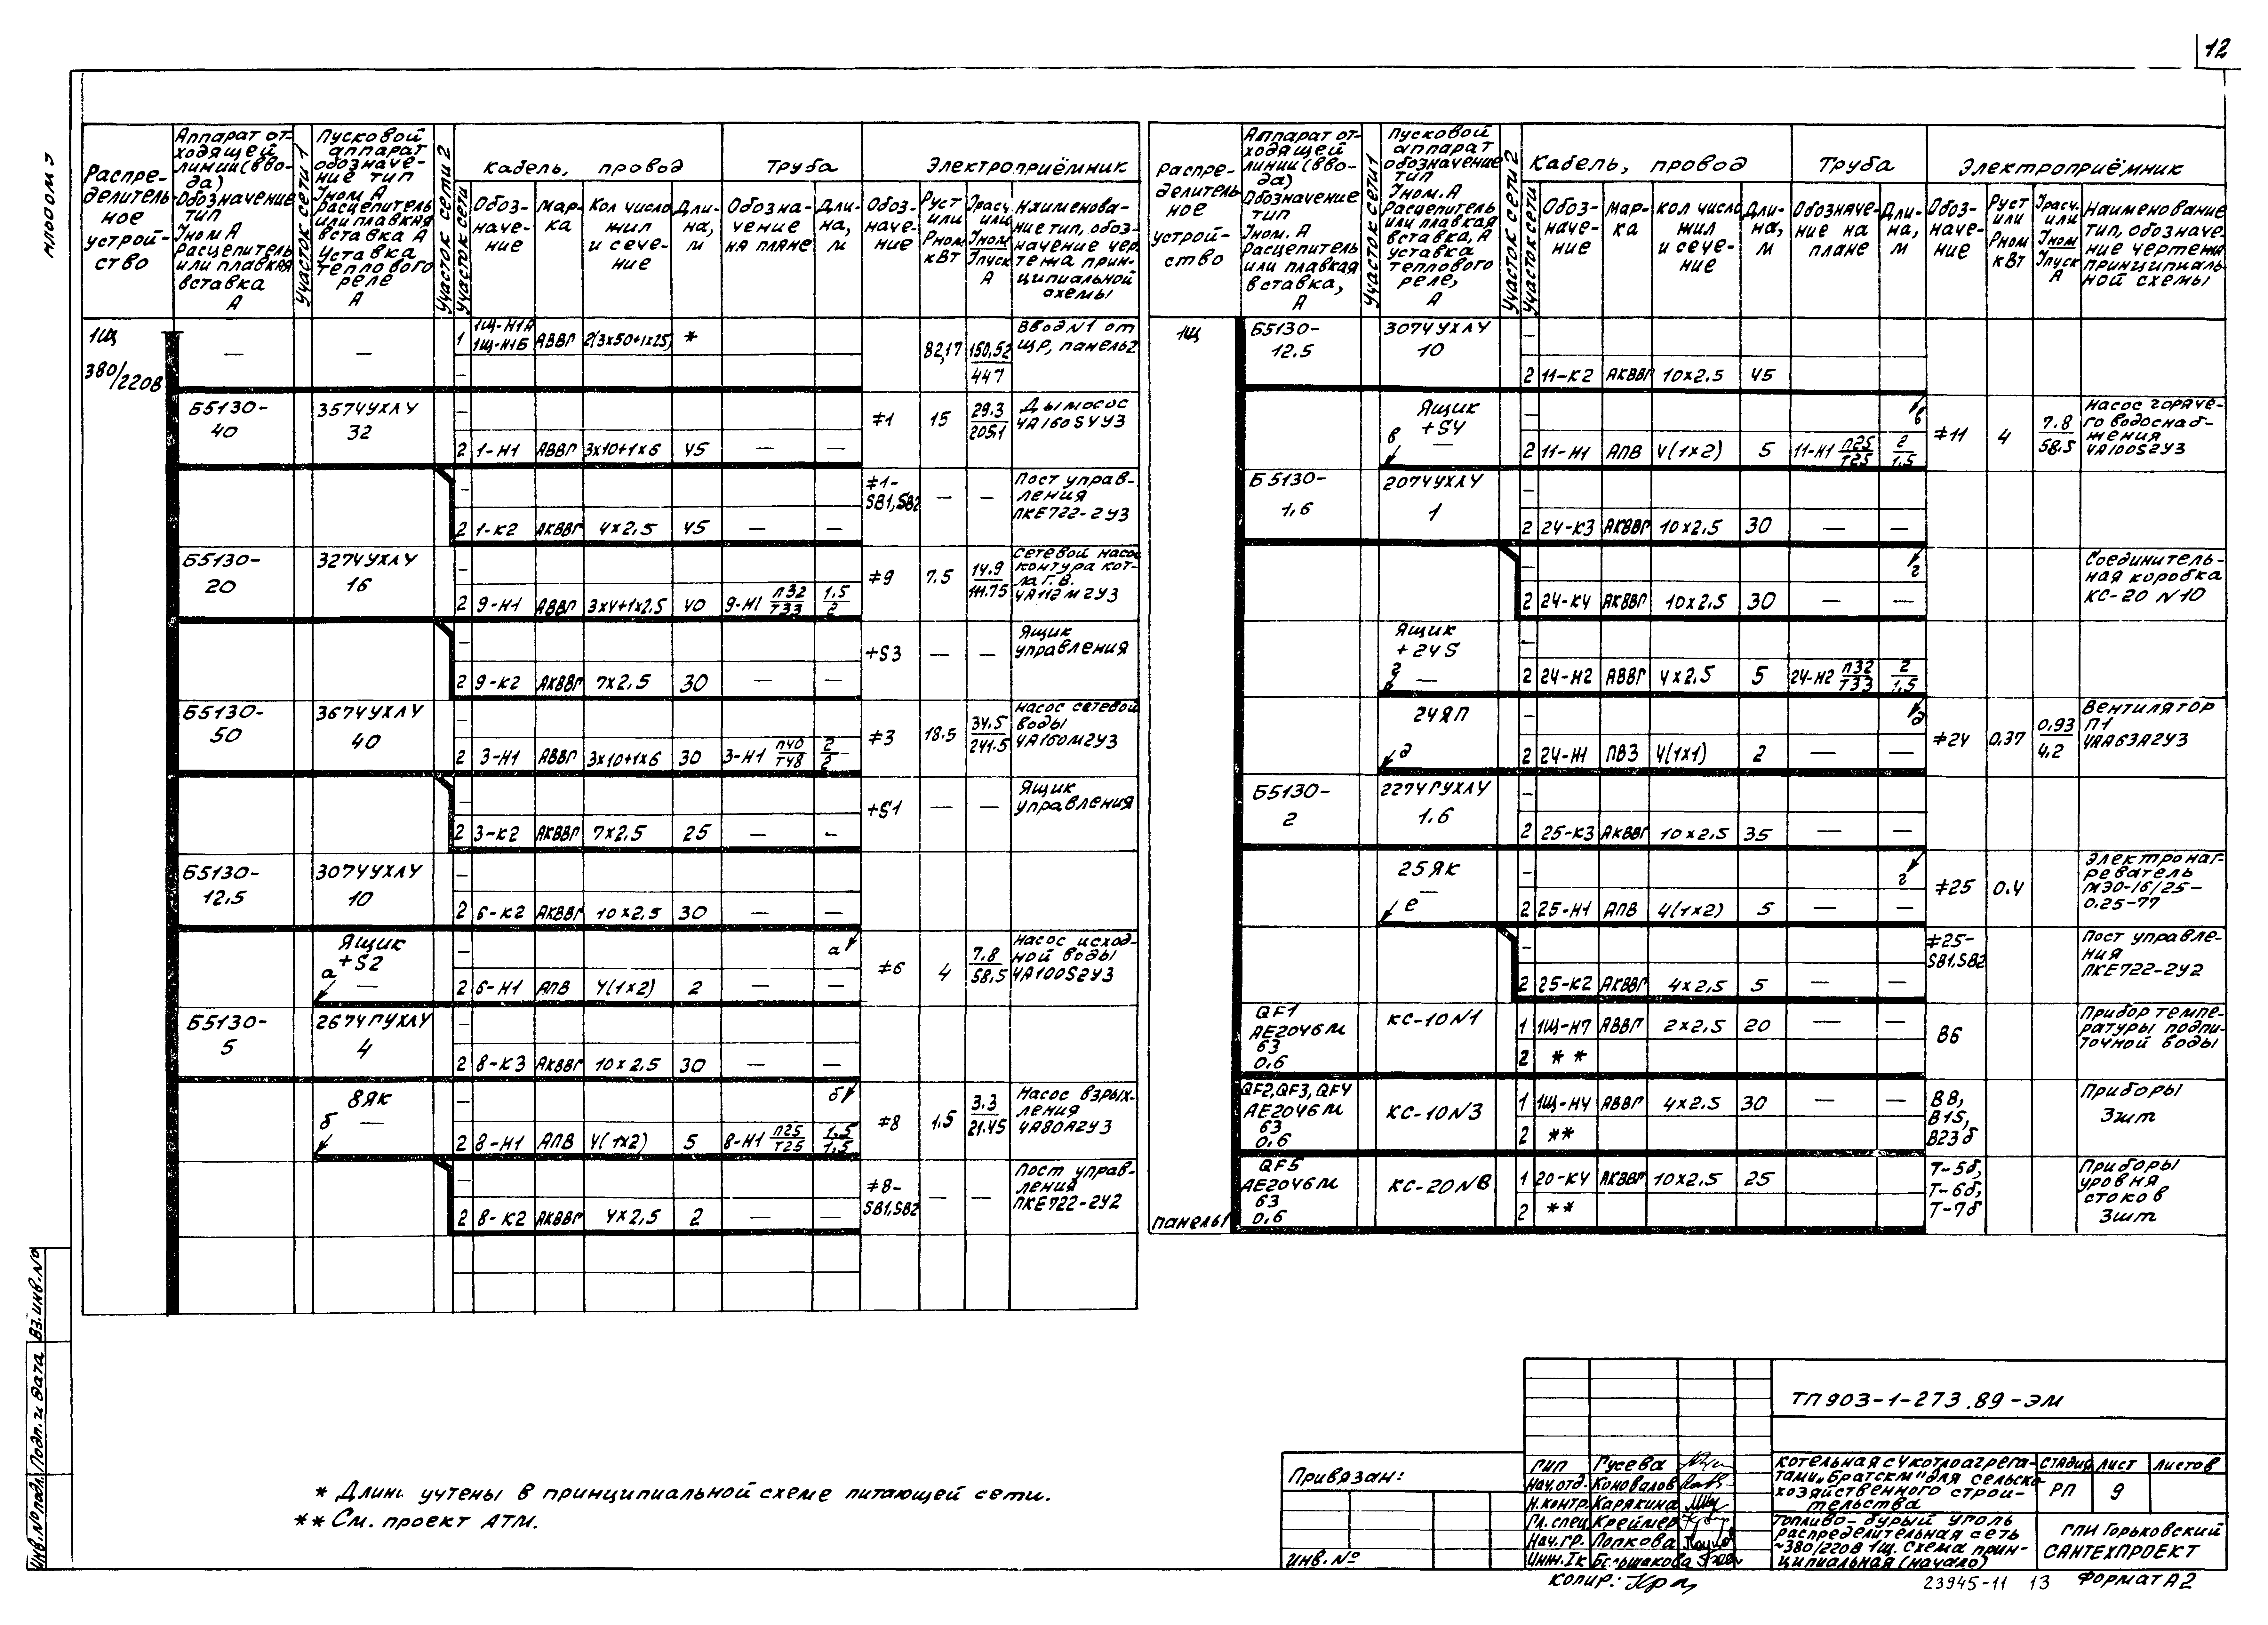 12
Распре-
делитель
ное
устрой-
ство
Аппарат от-
ходящей
линии (вво-
да)
Обозначение
тип
Iном А
Расцепитель
или плавкая
вставка
А
Участок сети 1
Пусковой
аппарат
обозначе-
ние тип
Iном А
Расцепитель
или плавкая
вставка А
Уставка
теплового
реле
А
Участок сети 2
Участок сети
Кабель, провод
Обоз-
наче-
ние
Мар-
ка
Кол число
жил
и сече-
ние
Дли-
на,
м
Труба
Обозна-
чение
на плане
Дли-
на,
м
Электроприёмник
Обоз-
наче-
ние
Руст
или
Рном
кВт
Iрасч.
или
Iном
Iпуск
А
Наименова-
ние тип, обоз-
начение чер-
тежа прин-
ципиальной
схемы
1Щ
380/220В
— —
1 1Щ-Н1А
1Щ-Н1Б АВВГ 2(3х50+1х25) *
82,17 150,52
447
Ввод N1 от
ЩР, панель 2
Б5130-
40
3574УХЛ4
32
2 1-Н1 АВВГ 3х10+1х6 45 — —
≠1 15 29.3
205,1
Дымосос
4А160S4У3
2 1-К2 АКВВГ 4х2,5 45 — —
≠1-
SB1,SB2 — —
Пост управ-
ления
ПКЕ722-2У3
Б5130-
20
3274УХЛ4
16
2 9-Н1 АВВГ 3х4+1х2,5 40 9-Н1 П32
Т33 1,5
2
≠9 7.5 14.9
111.75
Сетевой насос
контура кот-
ла Г.В.
4А112М2У3
2 9-К2 АКВВГ 7х2,5 30 — —
+S3 — —
Ящик
управления
Б5130-
50
3674УХЛ4
40
2 3-Н1 АВВГ 3х10+1х6 30 3-Н1 П40
Т48 2
2
≠3 18.5 34,5
241.5
Насос сетевой
воды
4А160М2У3
2 3-К2 АКВВГ 7х2,5 25 — —
+S1 — —
Ящик
управления
Б5130-
12,5
3074УХЛ4
10
2 6-К2 АКВВГ 10х2,5 30 — —
Ящик
+S2
а
—
а
2 6-Н1 АПВ 4(1х2) 2 — —
≠6 4 7.8
58,5
Насос исход-
ной воды
4А100S2У3
Б5130-
5
2674ГУХЛ4
4
2 8-К3 АКВВГ 10х2.5 30 — —
8ЯК
б —
б
2 8-Н1 АПВ 4(1х2) 5 8-Н1 П25
Т25 1,5
1,5
≠8 1,5 3.3
21.45
Насос взрых-
ления
4А80А2У3
2 8-К2 АКВВГ 4х2,5 2 — —
≠8-
SB1,SB2 — —
Пост управ-
ления
ПКЕ722-2У2
Распре-
делитель
ное
устрой-
ство
Аппарат от-
ходящей
линии (вво-
да)
Обозначение
тип
Iном. А
Расцепитель
или плавкая
вставка,
А
Участок сети 1
Пусковой
аппарат
обозначение
тип
Iном. А
Расцепитель
или плавкая
вставка, А
уставка
теплового
реле,
А
Участок сети 2
Участок сети
Кабель, провод
Обоз-
наче-
ние
Мар-
ка
Кол число
жил
и сече-
ние
Дли-
на,
м
Труба
Обозначе-
ние на
плане
Дли-
на,
м
Электроприёмник
Обоз-
наче-
ние
Руст
или
Рном
кВт
Iрасч.
или
Iном
Iпуск
А
Наименование
тип, обозначе-
ние чертежа
принципиаль-
ной схемы
1Щ
Б5130-
12.5
3074УХЛ4
10
2 11-К2 АКВВГ 10х2.5 45
Ящик
+S4
в —
в
2 11-Н1 АПВ 4(1х2) 5 11-Н1 П25
Т25 2
1,5
≠11 4 7.8
58,5
Насос горяче-
го водоснаб-
жения
4А100S2У3
Б5130-
1,6
2074УХЛ4
1
2 24-К3 АКВВГ 10х2,5 30 — —
г
2 24-К4 АКВВГ 10х2,5 30 — —
Соединитель-
ная коробка
КС-20 N10
Ящик
+24S
г —
2 24-Н2 АВВГ 4х2.5 5 24-Н2 П32
Т33 2
1,5
24ЯП
д
д
2 24-Н1 ПВ3 4(1х1) 2 — —
≠24 0.37 0,93
4,2
Вентилятор
П1
4АА63А2У3
Б5130-
2
2274ГУХЛ4
1.6
2 25-К3 АКВВГ 10х2,5 35 — —
25ЯК
—
е
г
2 25-Н1 АПВ 4(1х2) 5 — —
≠25 0.4
Электронаг-
реватель
МЭО-16/25-
0.25-77
2 25-К2 АКВВГ 4х2,5 5 — —
≠25-
SB1.SB2
Пост управле-
ния
ПКЕ722-2У2
QF1
АЕ2046М
63
0.6
КС-10N1
1 1Щ-Н7 АВВГ 2х2,5 20 — —
2 * *
В6
Прибор темпе-
ратуры подпи-
точной воды
QF2,QF3,QF4
АЕ2046М
63
0,6
КС-10N3
1 1Щ-Н4 АВВГ 4х2.5 30 — —
2 **
В8,
В15,
В23б
Приборы
3шт
QF5
АЕ2046М
63
0.6
КС-20N8
1 20-К4 АКВВГ 10х2,5 25
2 **
Т-5б,
Т-6б,
Т-7б
Приборы
уровня
стоков
3шт
панель1
* Длины учтены в принципиальной схеме питающей сети.
** См. проект АТМ.
Инв.№подл. Подп. и дата Вз.инв.№
Привязан:
Инв.№
ТП903-1-273.89-ЭМ
ГИП Гусева
Нач.отд. Коновалов
Н.контр. Карякина
Гл.спец. Креймер
Нач.гр. Попкова
Инж.Iк Большакова
Котельная с 4 котлоагрега-
тами „Братскм" для сельско-
хозяйственного строи-
тельства
Стадия Лист Листов
РП 9
Топливо-бурый уголь
распределительная сеть
~380/220В 1щ. Схема прин-
ципиальная (начало)
ГПИ Горьковский
САНТЕХПРОЕКТ
Копир.:
23945-11 13 Формат А2